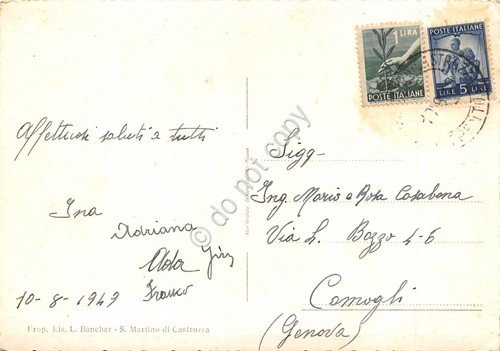 1 LIRA
POSTE ITALIANE
POSTE ITALIANE
LIRE 5 LIRE
Affettuosi saluti a tutti
Ina
Adriana
Alda
Franco
10-8-1949
Sigg-
Ing. Mario e Rosa Casabona
Via L. Bozzo 4-6
Camogli
(Genova)
Prop. Ris. L. Bancher - S. Martino di Castrozza
do not copy